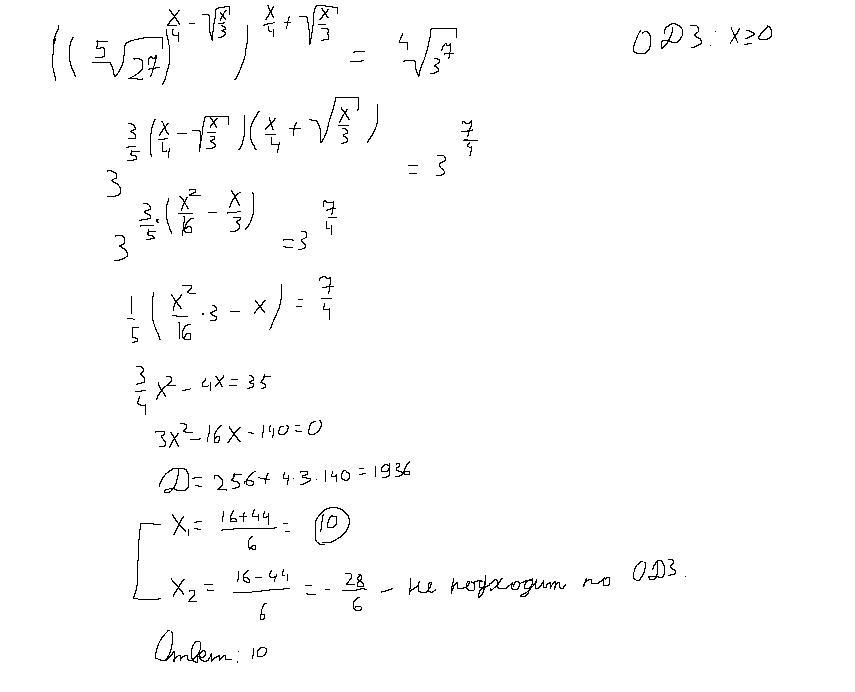 ((⁵√27)^(x/4 - √(x/3)))^(x/4 + √(x/3)) = ⁴√(3⁷) ОДЗ: x≥0
3^(3/5 (x/4 - √(x/3))(x/4 + √(x/3))) = 3^(7/4)
3^(3/5·(x²/16 - x/3)) = 3^(7/4)
1/5 (x²/16 ·3 - x) = 7/4
3/4 x² - 4x = 35
3x² - 16x - 140 = 0
D = 256 + 4·3·140 = 1936
x₁ = (16+44)/6 = 10
x₂ = (16-44)/6 = -28/6 - не подходит по ОДЗ.
Ответ: 10